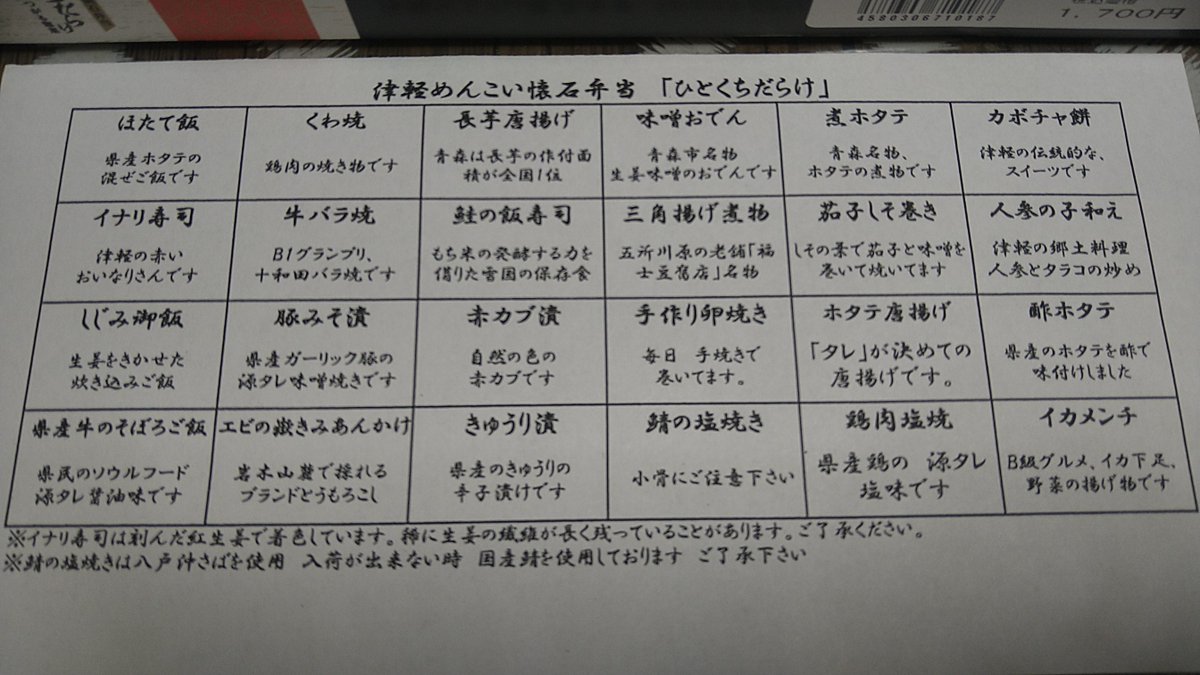 4580306710187
1,700円
津軽めんこい懐石弁当 「ひとくちだらけ」
ほたて飯
県産ホタテの
混ぜご飯です
くわ焼
鶏肉の焼き物です
長芋唐揚げ
青森は長芋の作付面
積が全国1位
味噌おでん
青森市名物
生姜味噌のおでんです
煮ホタテ
青森名物、
ホタテの煮物です
カボチャ餅
津軽の伝統的な、
スイーツです
イナリ寿司
津軽の赤い
おいなりさんです
牛バラ焼
B1グランプリ、
十和田バラ焼です
鮭の飯寿司
もち米の発酵する力を
借りた雪国の保存食
三角揚げ煮物
五所川原の老舗「福
士豆腐店」名物
茄子しそ巻き
しその葉で茄子と味噌を
巻いて焼いてます
人参の子和え
津軽の郷土料理
人参とタラコの炒め
しじみ御飯
生姜をきかせた
炊き込みご飯
豚みそ漬
県産ガーリック豚の
源タレ味噌焼きです
赤カブ漬
自然の色の
赤カブです
手作り卵焼き
毎日 手焼きで
巻いてます。
ホタテ唐揚げ
「タレ」が決めての
唐揚げです。
酢ホタテ
県産のホタテを酢で
味付けしました
県産牛のそぼろご飯
県民のソウルフード
源タレ醤油味です
エビの嶽きみあんかけ
岩木山麓で採れる
ブランドとうもろこし
きゅうり漬
県産のきゅうりの
辛子漬けです
鯖の塩焼き
小骨にご注意下さい
鶏肉塩焼
県産鶏の 源タレ
塩味です
イカメンチ
B級グルメ、イカ下足、
野菜の揚げ物です
※イナリ寿司は刻んだ紅生姜で着色しています。稀に生姜の繊維が長く残っていることがあります。ご了承ください。
※鯖の塩焼きは八戸沖さばを使用 入荷が出来ない時 国産鯖を使用しております ご了承下さい